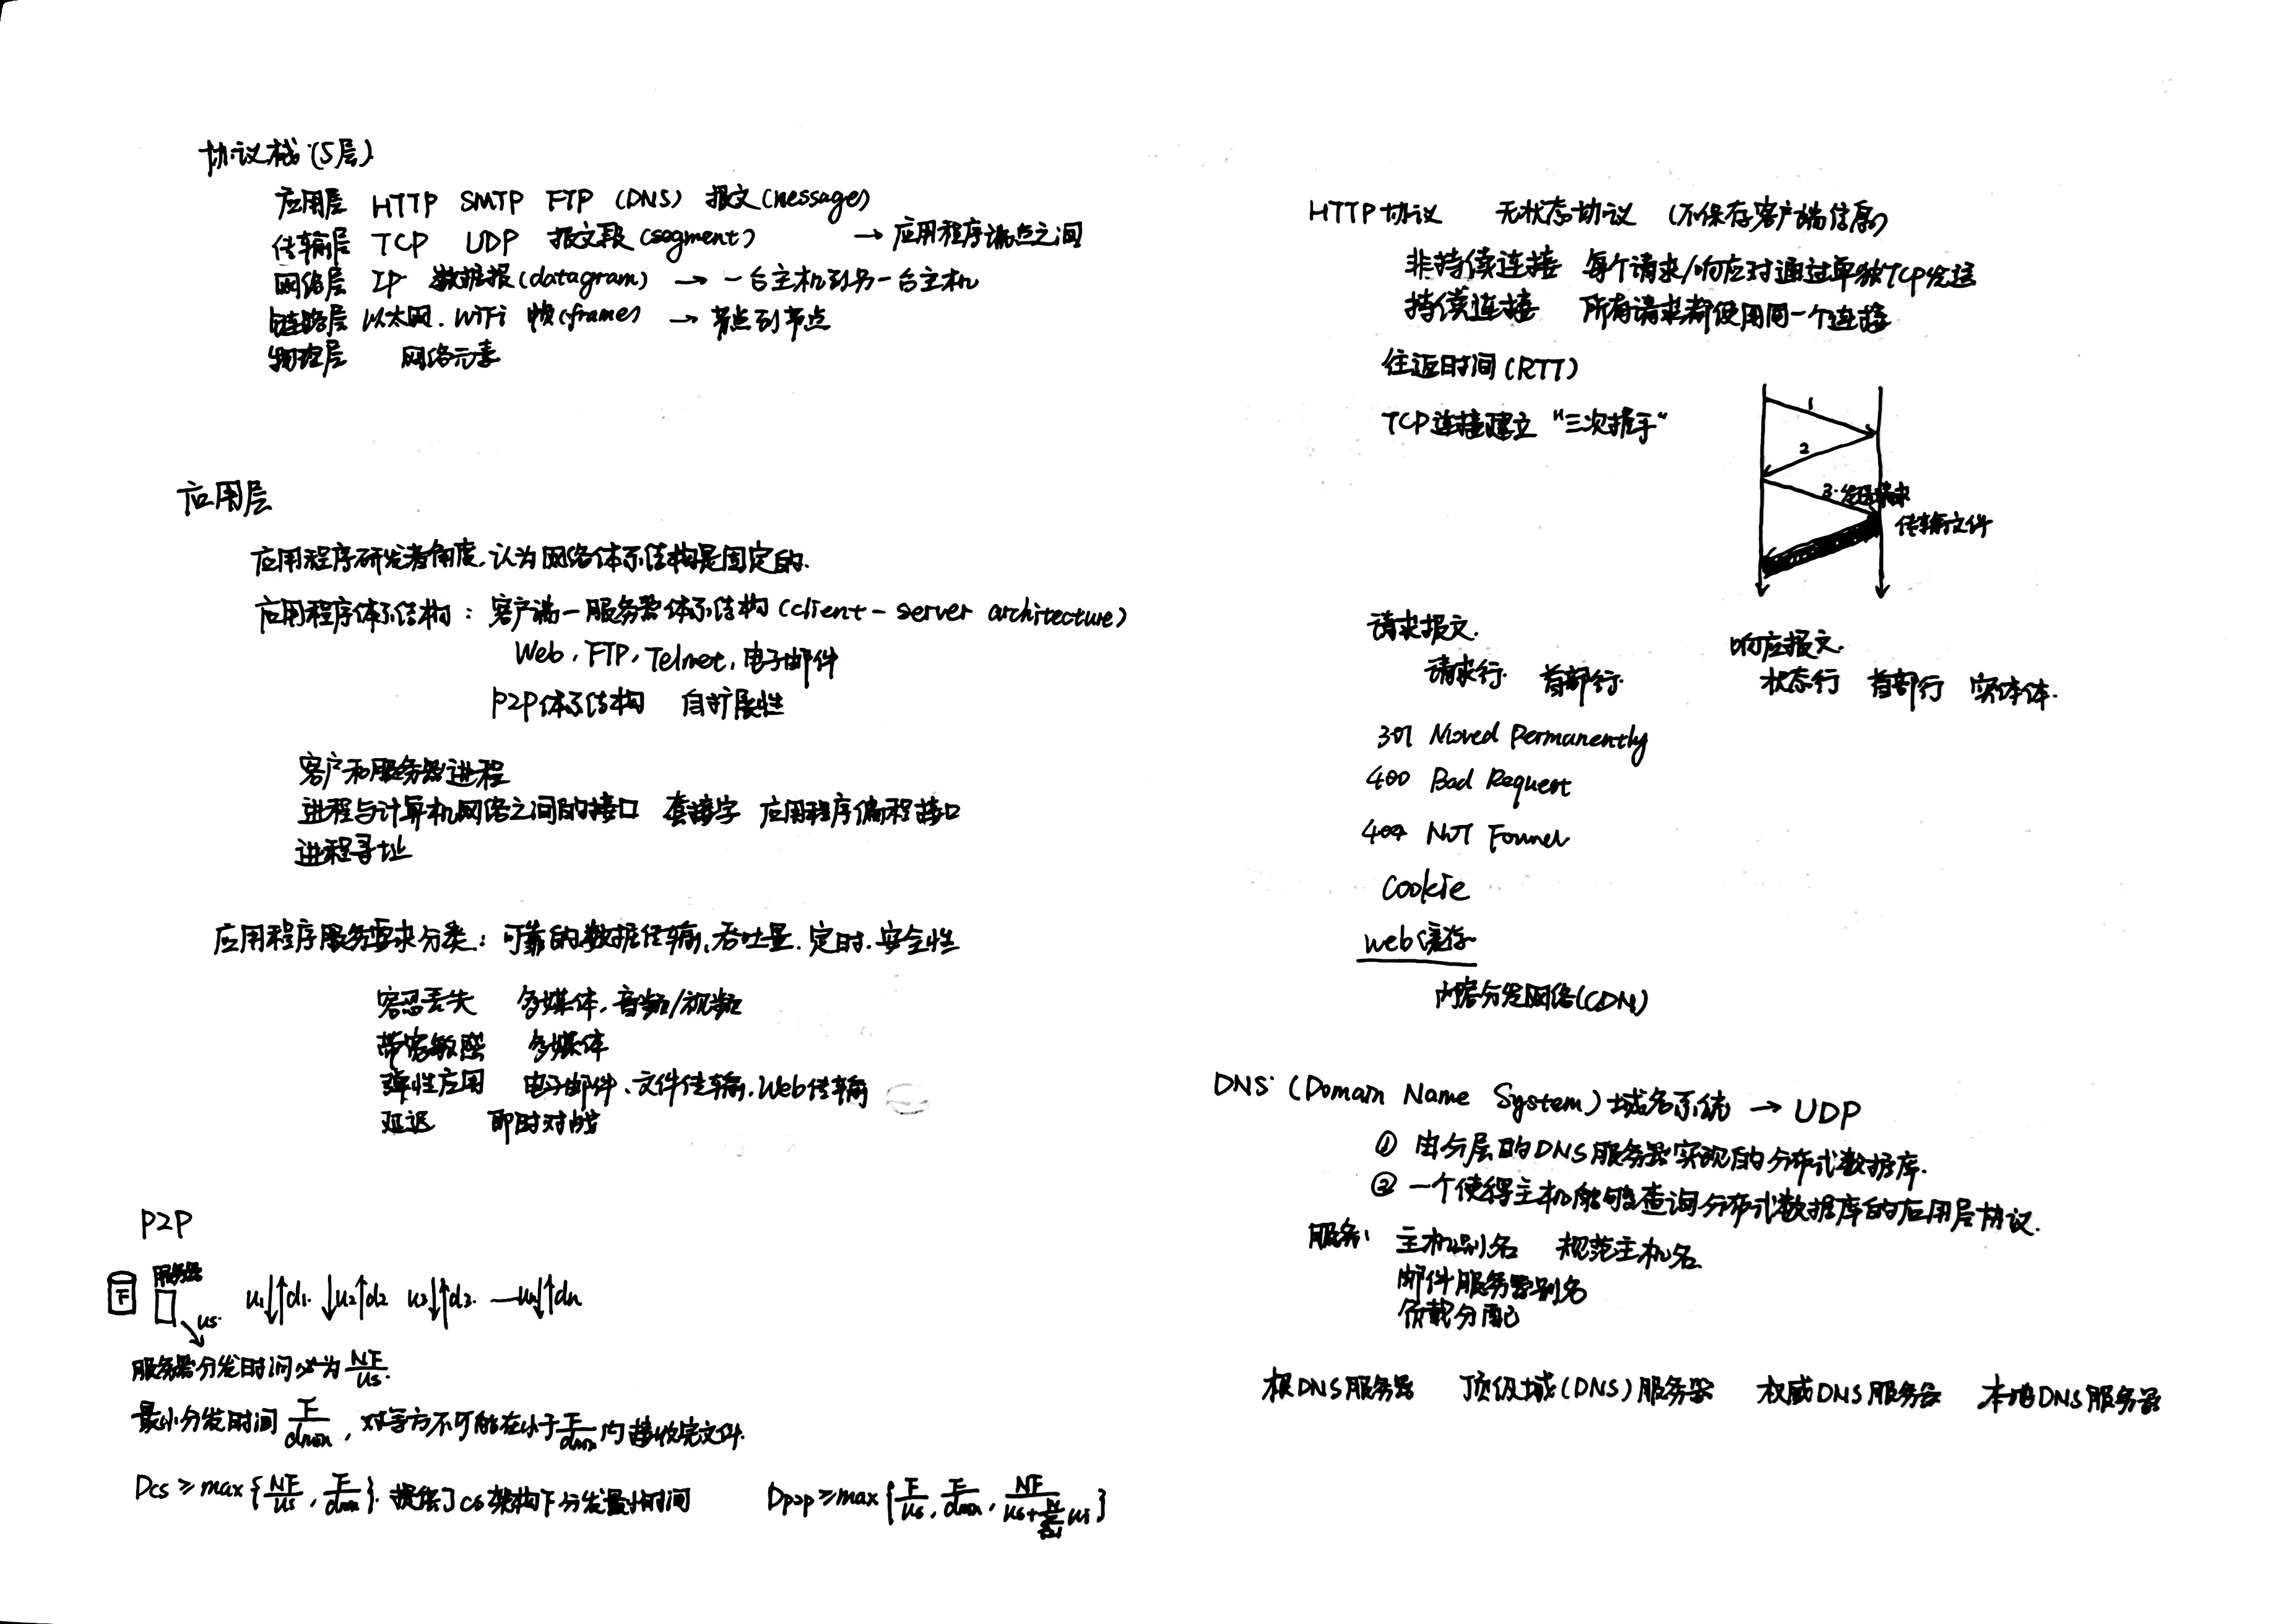 协议栈(5层)
应用层 HTTP SMTP FTP (DNS) 报文(message)
传输层 TCP UDP 报文段(segment) → 应用程序端点之间
网络层 IP 数据报(datagram) → 一台主机到另一台主机
链路层 以太网.WiFi 帧(frame) → 节点到节点
物理层 网络元素
应用层
应用程序研发者角度,认为网络体系结构是固定的.
应用程序体系结构: 客户端-服务器体系结构(client-server architecture)
Web, FTP, Telnet, 电子邮件
P2P体系结构 自扩展性
客户和服务器进程
进程与计算机网络之间的接口 套接字 应用程序编程接口
进程寻址
应用程序服务要求分类: 可靠的数据传输、吞吐量.定时.安全性
容忍丢失 多媒体,音频/视频
带宽敏感 多媒体
弹性应用 电子邮件、文件传输.Web传输
延迟 即时对战
P2P
F 服务器 us
u1 d1 u2 d2 u3 d3 — un dn
服务器分发时间必为 NF/us.
最小分发时间 F/dmin, 对等方不可能在小于F/dmin内接收完文件.
Dcs ≥ max{NF/us, F/dmin}. 提供了CS架构下分发最小时间
Dp2p ≥ max{F/us, F/dmin, NF/(us+∑(i=1→N)ui)}
HTTP协议 无状态协议 (不保存客户端信息)
非持续连接 每个请求/响应对通过单独TCP发送
持续连接 所有请求都使用同一个连接
往返时间(RTT)
TCP连接建立 "三次握手"
1
2
3.发送请求
传输文件
请求报文.
请求行. 首部行.
响应报文.
状态行 首部行 实体体.
301 Moved Permanently
400 Bad Request
404 NOT Found
Cookie
web缓存
内容分发网络(CDN)
DNS (Domain Name System) 域名系统 → UDP
① 由分层的DNS服务器实现的分布式数据库.
② 一个使得主机能够查询分布式数据库的应用层协议.
服务: 主机别名 规范主机名
邮件服务器别名
负载分配
根DNS服务器 顶级域(DNS)服务器 权威DNS服务器 本地DNS服务器